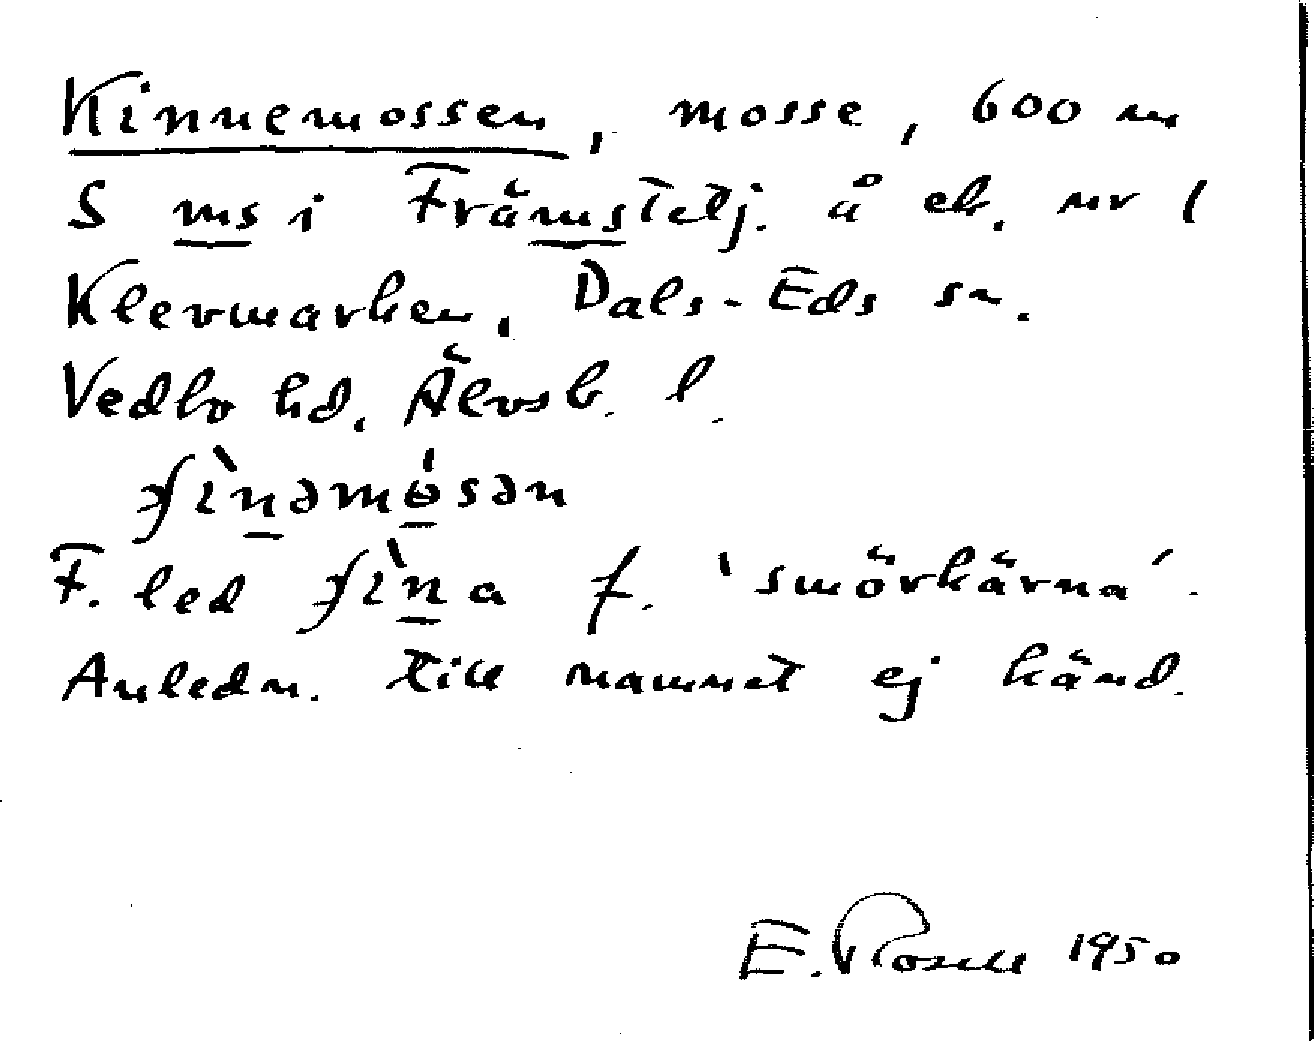 Kinnemossen, mosse, 600 m
S ms i Främstelj. å ek. nr 1
Klevmarken, Dals-Eds sn.
Vedbo hd. Älvsb. l.
F. led f. 'smörkärna'.
Anledn. till namnet ej känd.
E. Rosell 1950